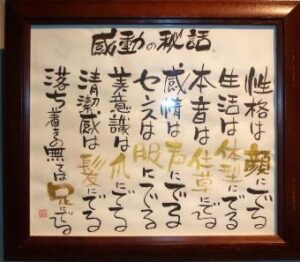 感動の秘話。
性格は顔にでる
生活は体型にでる
本音は仕草にでる
感情は声にでる
センスは服にでる
美意識は爪にでる
清潔感は髪にでる
落ち着きの無さは足にでる